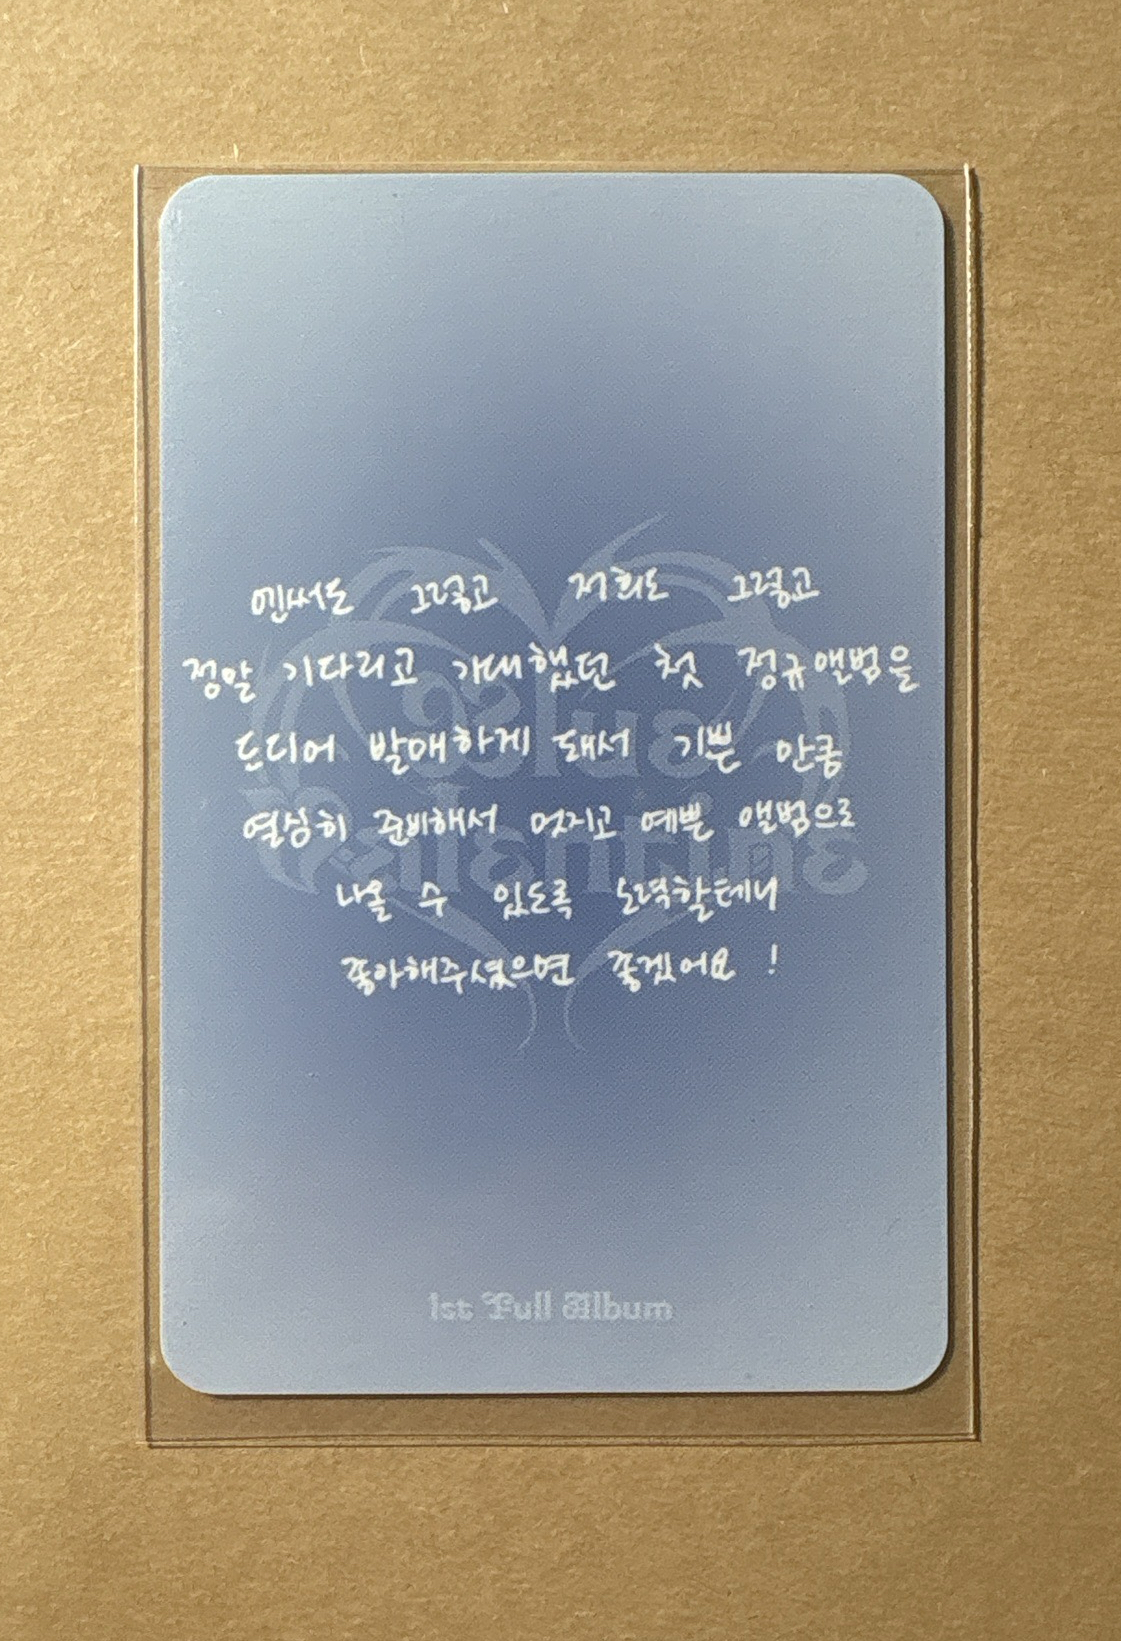 엔써도 그렇고 저희도 그렇고
정말 기다리고 기대했던 첫 정규앨범을
드디어 발매하게 돼서 기쁜 만큼
열심히 준비해서 멋지고 예쁜 앨범으로
나올 수 있도록 노력할테니
좋아해주셨으면 좋겠어요 !
Blue
Valentine
1st Full Album